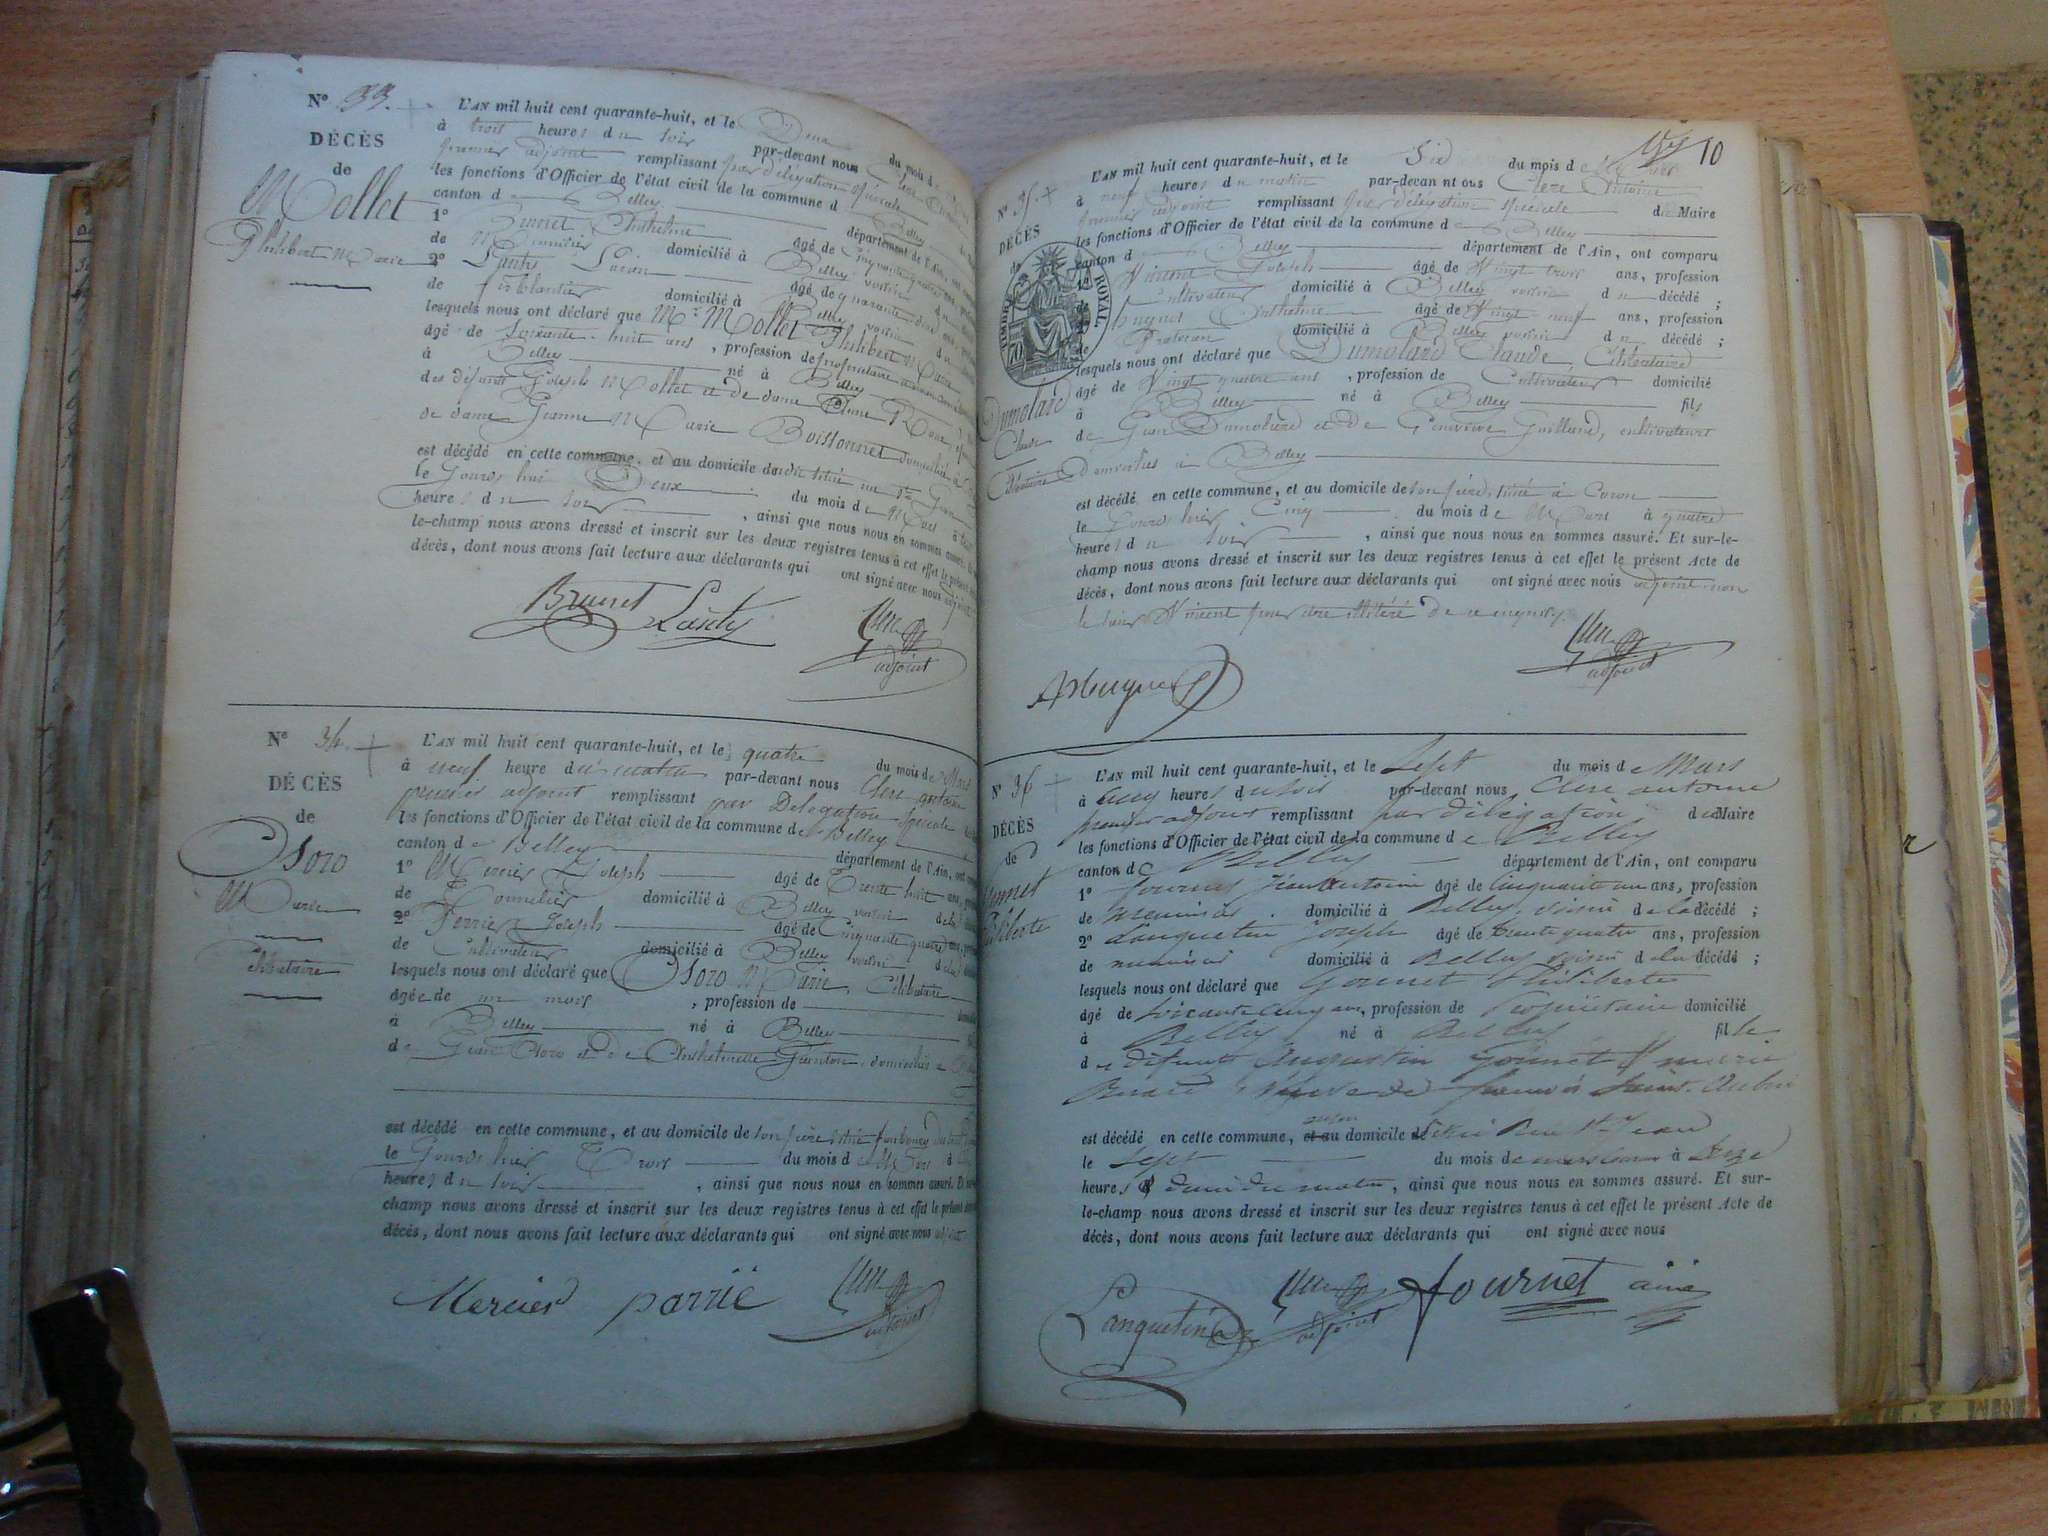 N° 33.
DÉCÈS
de
Mollet
Philibert Marie
L'AN mil huit cent quarante-huit, et le Deux du mois d
à trois heures du soir par-devant nous Clerc
premier adjoint remplissant par délégation spéciale
les fonctions d'Officier de l'état civil de la commune d Belley
canton de Belley département de l'Ain,
1° Brunet Anthelme âgé de cinquante quatre
de domicilié à Belley voisin
2° âgé de quarante
de ferblantier domicilié à Belley voisin du
lesquels nous ont déclaré que Mr Mollet Philibert Marie
âgé de soixante-huit ans, profession de propriétaire
à Belley né à Belley
des défunts Joseph Mollet et de dame
de dame Jeanne Marie Boissonnet domiciliée à
est décédé en cette commune, et au domicile
le Jourd'hui Deux du mois de Mars à
heures du soir, ainsi que nous nous en sommes assuré.
le-champ nous avons dressé et inscrit sur les deux registres tenus à cet effet le présent
décès, dont nous avons fait lecture aux déclarants qui ont signé avec nous adjoint
Brunet
adjoint
N° 34.
DÉCÈS
de
Soro
Marie
Célibataire
L'AN mil huit cent quarante-huit, et le quatre du mois de Mars
à neuf heure du matin par-devant nous Clerc antoine
premier adjoint remplissant par Délégation spéciale
les fonctions d'Officier de l'état civil de la commune de Belley
canton de Belley département de l'Ain,
1° Mercier Joseph âgé de Trente huit ans,
de Tonnelier domicilié à Belley voisin de la
2° Ferrier Joseph âgé de Cinquante quatre ans,
de Cultivateur domicilié à Belley voisin de la
lesquels nous ont déclaré que Soro Marie, Célibataire
âgée de un mois, profession de
à Belley né à Belley
de Jean Soro et de Anthelmette domiciliés à
est décédé en cette commune, et au domicile de son père, situé faubourg
le Jourd'hier Trois du mois de Mars à
heures du soir, ainsi que nous nous en sommes assuré. Et
champ nous avons dressé et inscrit sur les deux registres tenus à cet effet le présent
décès, dont nous avons fait lecture aux déclarants qui ont signé avec nous adjoint
Mercier
adjoint
10
N° 35.
DÉCÈS
de
Dumolard
Claude
Célibataire
TIMBRE ROYAL
L'AN mil huit cent quarante-huit, et le Six du mois de Mars
à neuf heures du matin par-devant nous Clerc Antoine
premier adjoint remplissant par délégation spéciale du Maire
les fonctions d'Officier de l'état civil de la commune de Belley
canton d Belley département de l'Ain, ont comparu
1° Vincent Joseph âgé de Vingt trois ans, profession
de Cultivateur domicilié à Belley voisin du décédé ;
2° Huguet Anthelme âgé de Vingt neuf ans, profession
de domicilié à Belley voisin du décédé ;
lesquels nous ont déclaré que Dumolard Claude, Célibataire
âgé de Vingt quatre ans, profession de Cultivateur domicilié
à Belley né à Belley fils
de Jean Dumolard et de Geneviève Gaillard, cultivateurs
Domiciliés à Belley
est décédé en cette commune, et au domicile de son père, situé à Coron
le Jourd'hier Cinq du mois de Mars à quatre
heures du soir, ainsi que nous nous en sommes assuré. Et sur-le-
champ nous avons dressé et inscrit sur les deux registres tenus à cet effet le présent Acte de
décès, dont nous avons fait lecture aux déclarants qui ont signé avec nous adjoint non
le sieur Vincent pour être illitéré de ce enquis.
adjoint
N° 36
DÉCÈS
de
L'AN mil huit cent quarante-huit, et le Sept du mois de Mars
à cinq heures du soir par-devant nous Clerc antoine
premier adjoint remplissant par délégation du Maire
les fonctions d'Officier de l'état civil de la commune de Belley
canton de Belley département de l'Ain, ont comparu
1° fournet Jean antoine âgé de Cinquante un ans, profession
de menuisier domicilié à Belley, voisin de la décédé ;
2° Lanquetin joseph âgé de trente quatre ans, profession
de menuisier domicilié à Belley voisin de la décédé ;
lesquels nous ont déclaré que Gonnet Philiberte
âgé de soixante cinq ans, profession de Propriétaire domicilié
à Belley né à Belley fille
de défunts Augustin Gonnet & marie
veuve de françois
est décédé en cette commune, et au domicile
le Sept du mois de mars à onze
heures & demi du matin, ainsi que nous nous en sommes assuré. Et sur-
le-champ nous avons dressé et inscrit sur les deux registres tenus à cet effet le présent Acte de
décès, dont nous avons fait lecture aux déclarants qui ont signé avec nous
Lanquetin adjoint fournet ainé